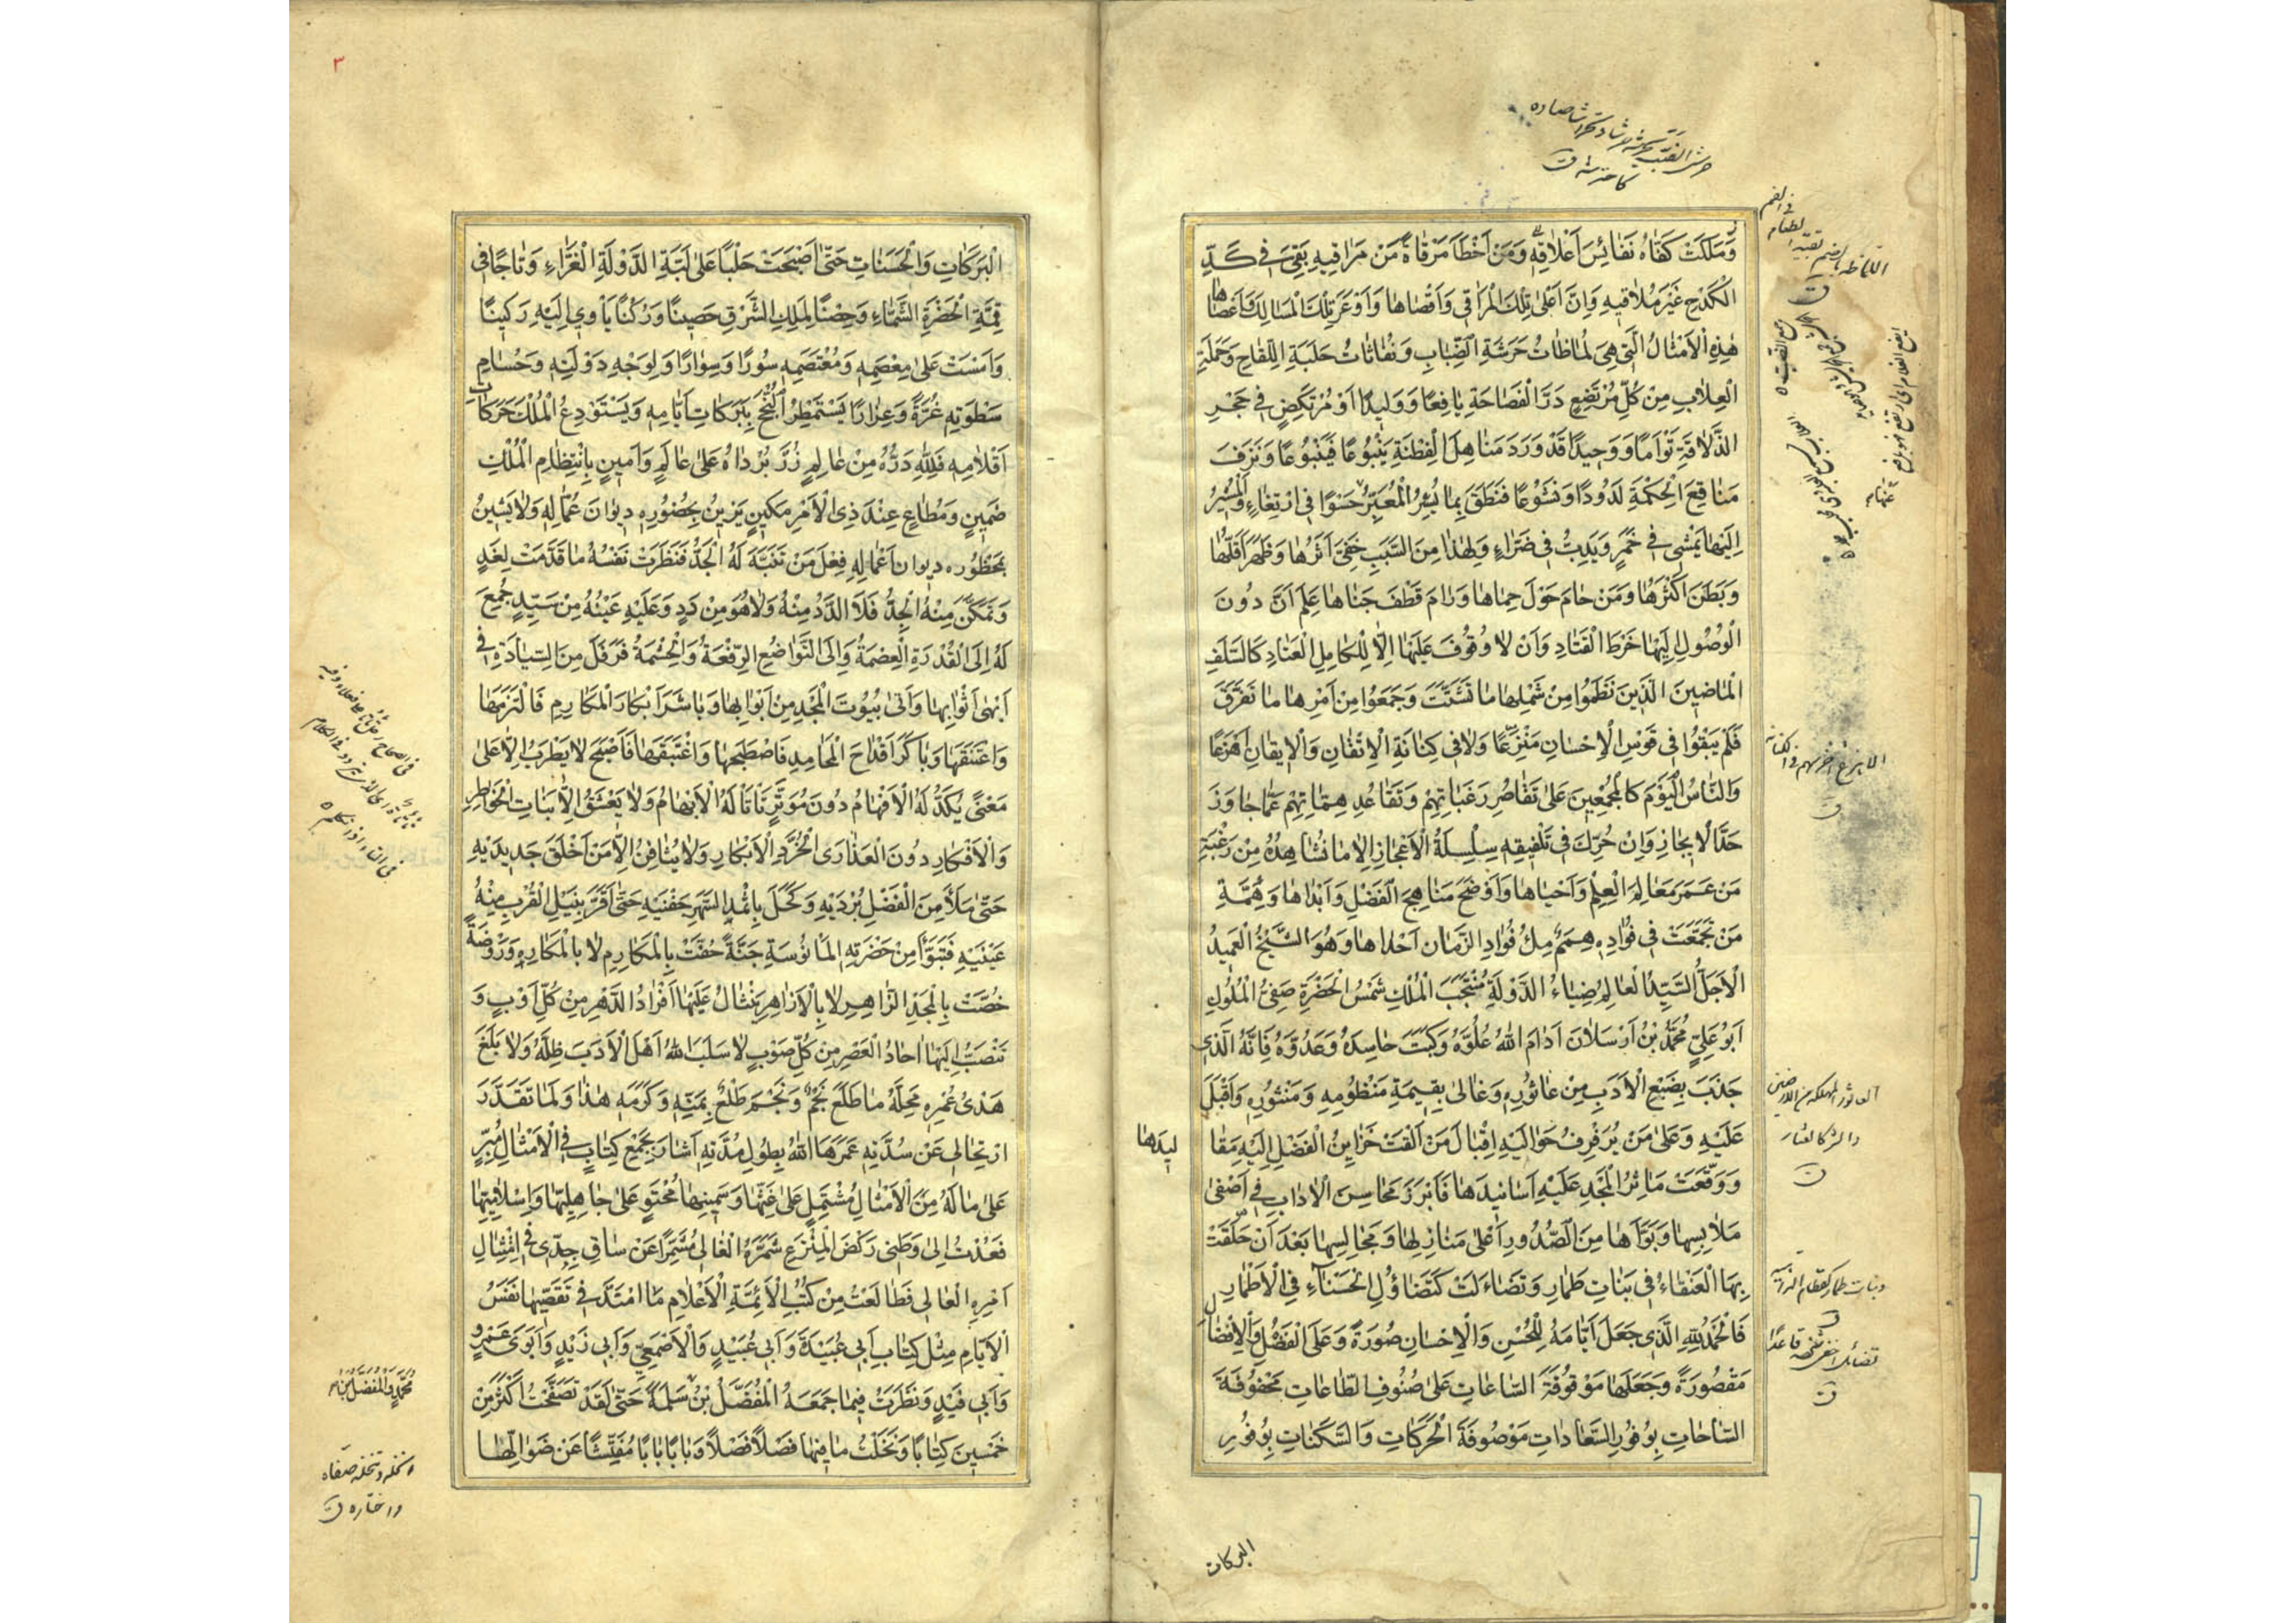 وَمَلَكَتْ كَفَّاهُ نَفَائِسَ أَعْلَاقِهِ وَمَنْ أَخْطَأَ مَرْقَاةً مَنْ مَرَاقِيهِ بَقِيَ فِي كَدِّ
الْكَدْحِ غَيْرَ مُلَاقِيهِ وَإِنَّ أَعْلَى تِلْكَ الْمَرَاقِي وَأَقْصَاهَا وَأَوْعَرَ تِلْكَ الْمَسَالِكِ وَأَعْصَاهَا
هٰذِهِ الْأَمْثَالُ الَّتِي هِيَ لُمَاظَاتُ حَرَشَةِ الضِّبَابِ وَنُفَاثَاتُ حَلَبَةِ اللِّقَاحِ وَحَمَلَةِ
الْعِلَابِ مِنْ كُلِّ مُرْتَضِعٍ دَرَّ الْفَصَاحَةِ يَافِعًا وَوَلِيدًا أَوْ مُرْتَكِضٍ فِي حَجْرِ
الذَّلَاقَةِ تَوْأَمًا وَوَحِيدًا قَدْ وَرَدَ مَنَاهِلَ الْفِطْنَةِ يَنْبُوعًا فَيَنْبُوعًا وَنَزَفَ
مَنَاقِعَ الْحِكْمَةِ لَدُودًا وَنَشُوعًا فَنَطَقَ بِمَا يُسِرُّ الْمُعَبِّرُ حَسْوًا فِي ارْتِغَاءٍ وَالْمُشِيرُ
إِلَيْهَا يَمْشِي فِي خَمَرٍ وَيَدِبُّ فِي ضَرَاءٍ وَلِهٰذَا مِنَ السَّبَبِ خَفِيَ أَثَرُهَا وَظَهَرَ أَقَلُّهَا
وَبَطَنَ أَكْثَرُهَا وَمَنْ حَامَ حَوْلَ حِمَاهَا وَرَامَ قَطْفَ جَنَاهَا عَلِمَ أَنَّ دُونَ
الْوُصُولِ إِلَيْهَا خَرْطَ الْقَتَادِ وَأَنْ لَا وُقُوفَ عَلَيْهَا إِلَّا لِلْكَامِلِ الْعَتَادِ كَالسَّلَفِ
الْمَاضِينَ الَّذِينَ نَظَمُوا مِنْ شَمْلِهَا مَا تَشَتَّتَ وَجَمَعُوا مِنْ أَمْرِهَا مَا تَفَرَّقَ
فَلَمْ يُبْقُوا فِي قَوْسِ الْإِحْسَانِ مَنْزَعًا وَلَا فِي كِنَانَةِ الْإِتْقَانِ وَالْإِيقَانِ أَهْزَعًا
وَالنَّاسُ الْيَوْمَ كَالْمُجْمِعِينَ عَلَى تَقَاصُرِ رَغَبَاتِهِمْ وَتَقَاعُدِ هِمَّاتِهِمْ عَمَّا جَاوَزَ
حَدَّ الْإِيجَازِ وَإِنْ حُرِّكَ فِي تَلْفِيقِهِ سِلْسِلَةُ الْأَعْجَازِ إِلَّا مَا نُشَاهِدُهُ مِنْ رَغْبَةِ
مَنْ عَمَرَ مَعَالِمَ الْعِلْمِ وَأَحْيَاهَا وَأَوْضَحَ مَنَاهِجَ الْفَضْلِ وَأَبْدَاهَا وَهِمَّةِ
مَنْ تَجَمَّعَتْ فِي فُؤَادِهِ هِمَمٌ مِلْءُ فُؤَادِ الزَّمَانِ أَحْدَاهَا وَهُوَ الشَّيْخُ الْعَمِيدُ
الْأَجَلُّ السَّيِّدُ الْعَالِمُ ضِيَاءُ الدَّوْلَةِ مُنْتَجَبُ الْمُلْكِ شَمْسُ الْحَضْرَةِ صَفِيُّ الْمُلُوكِ
أَبُو عَلِيٍّ مُحَمَّدُ بْنُ أَرْسَلَانَ أَدَامَ اللهُ عُلُوَّهُ وَكَبَتَ حَاسِدَهُ وَعَدُوَّهُ فَإِنَّهُ الَّذِي
جَذَبَ بِضَبْعِ الْأَدَبِ مِنْ عَاثُورِهِ وَغَالَى بِقِيمَةِ مَنْظُومِهِ وَمَنْثُورِهِ وَأَقْبَلَ
عَلَيْهِ وَعَلَى مَنْ يُرَفْرِفُ حَوَالَيْهِ إِقْبَالَ مَنْ أَلْقَتْ خَزَايِنُ الْفَضْلِ إِلَيْهِ مَقَا
لِيدَهَا
وَوَقَّعَتْ مَآثِرُ الْمَجْدِ عَلَيْهِ أَسَانِيدَهَا فَأَبْرَزَ مَحَاسِنَ الْآدَابِ فِي أَصْفَى
مَلَابِسِهَا وَبَوَّأَهَا مِنَ الصُّدُورِ أَعْلَى مَنَازِلِهَا وَمَجَالِسِهَا بَعْدَ أَنْ حَلَّقَتْ
بِهَا الْعَنْقَاءُ فِي بَنَاتِ طَمَارِ وَتَضَاءَلَتْ كَتَضَاؤُلِ الْحَسْنَاءِ فِي الْأَطْمَارِ
فَالْحَمْدُ لِلّٰهِ الَّذِي جَعَلَ أَيَّامَهُ لِلْحُسْنِ وَالْإِحْسَانِ صُورَةً وَعَلَى الْفَضْلِ وَالْإِفْضَالِ
مَقْصُورَةً وَجَعَلَهَا مَوْقُوفَةَ السَّاعَاتِ عَلَى صُنُوفِ الطَّاعَاتِ مَحْفُوفَةَ
السَّاحَاتِ بِوُفُورِ السَّعَادَاتِ مَوْصُوفَةَ الْحَرَكَاتِ وَالسَّكَنَاتِ بِوُفُورِ
البركات
٣
الْبَرَكَاتِ وَالْحَسَنَاتِ حَتَّى أَصْبَحَتْ حَلْيًا عَلَى لَبَّةِ الدَّوْلَةِ الْغَرَّاءِ وَتَاجًا فِي
قِمَّةِ الْحَضْرَةِ الشَّمَّاءِ وَحِصْنًا لِمَلِكِ الشَّرْقِ حَصِينًا وَرُكْنًا يَأْوِي إِلَيْهِ رَكِينًا
وَأَمْسَتْ عَلَى مِعْصَمِهِ وَمُعْتَصَمِهِ سُورًا وَسِوَارًا وَلِوَجْهِ دَوْلَتِهِ وَحُسَامِ
سَطْوَتِهِ غُرَّةً وَغِرَارًا يَسْتَمْطِرُ النُّجْحَ بِبَرَكَاتِ أَيَّامِهِ وَيَسْتَوْدِعُ الْمُلْكَ حَرَكَاتِ
أَقْلَامِهِ فَلِلّٰهِ دَرُّهُ مِنْ عَالِمٍ زُرَّ بُرْدَاهُ عَلَى عَالَمٍ وَأَمِينٍ بِانْتِظَامِ الْمُلْكِ
ضَمِينٍ وَمُطَاعٍ عِنْدَ ذِي الْأَمْرِ مَكِينٍ يَزِينُ بِحُضُورِهِ دِيوَانَ عُمَّالِهِ وَلَا يَشِينُ
بِمَحْظُورِهِ دِيوَانَ أَعْمَالِهِ فِعْلَ مَنْ تَنَبَّهَ لَهُ الْجَدُّ فَنَظَرَتْ نَفْسُهُ مَا قَدَّمَتْ لِغَدٍ
وَتَمَكَّنَ مِنْهُ الْجِدُّ فَلَا الدَّدُ مِنْهُ وَلَا هُوَ مِنْ دَدٍ وَعَلَيْهِ عَيْنُهُ مِنْ سَيِّدٍ جُمِعَ
لَهُ إِلَى الْقُدْرَةِ الْعِصْمَةُ وَإِلَى التَّوَاضُعِ الرِّفْعَةُ وَالْحِشْمَةُ فَرَفَلَ مِنَ السِّيَادَةِ فِي
أَبْهَى أَثْوَابِهَا وَأَتَى بُيُوتَ الْمَجْدِ مِنْ أَبْوَابِهَا وَبَاشَرَ أَبْكَارَ الْمَكَارِمِ فَالْتَزَمَهَا
وَاعْتَنَقَهَا وَبَاكَرَ أَقْدَاحَ الْمَحَامِدِ فَاصْطَبَحَهَا وَاغْتَبَقَهَا فَأَصْبَحَ لَا يَطْرَبُ إِلَّا عَلَى
مَعْنًى يُكَدُّ لَهُ الْأَفْهَامُ دُونَ مُوَتَّرٍ تَأَتَّا لَهُ الْأَبْهَامُ وَلَا يَعْشَقُ إِلَّا بَنَاتِ الْخَوَاطِرِ
وَالْأَفْكَارِ دُونَ الْعَذَارَى الْخُرَّدِ الْأَبْكَارِ وَلَا يُثَافِنُ إِلَّا مَنْ أَخْلَقَ جَدِيدَيْهِ
حَتَّى مَلَأَ مِنَ الْفَضْلِ بُرْدَيْهِ وَكَحَّلَ بِإِثْمِدِ السَّهَرِ جَفْنَيْهِ حَتَّى أَقَرَّ بِنَيْلِ الْقُرْبِ مِنْهُ
عَيْنَيْهِ فَتَبَوَّأَ مِنْ حَضْرَتِهِ الْمَأْنُوسَةِ جَنَّةً حُفَّتْ بِالْمَكَارِمِ لَا بِالْمَكَارِهِ وَرَوْضَةً
خُصَّتْ بِالْمَجْدِ الزَّاهِرِ لَا بِالْأَزَاهِرِ يَنْثَالُ عَلَيْهَا أَفْرَادُ الدَّهْرِ مِنْ كُلِّ أَوْبٍ وَ
تَنْصَبُّ إِلَيْهَا آحَادُ الْعَصْرِ مِنْ كُلِّ صَوْبٍ لَا سَلَبَ اللهُ أَهْلَ الْأَدَبِ ظِلَّهُ وَلَا بَلَغَ
هَدْيُ عُمْرِهِ مَحِلَّهُ مَا طَلَعَ نَجْمٌ وَنَجَمَ طَلْعٌ بِمَنِّهِ وَكَرَمِهِ هٰذَا وَلَمَّا تَقَدَّرَ
ارْتِحَالِي عَنْ سُدَّتِهِ عَمَرَهَا اللهُ بِطُولِ مُدَّتِهِ أَشَارَ بِجَمْعِ كِتَابٍ فِي الْأَمْثَالِ مُبِرٍّ
عَلَى مَا لَهُ مِنَ الْأَمْثَالِ مُشْتَمِلٍ عَلَى غَثِّهَا وَسَمِينِهَا مُحْتَوٍ عَلَى جَاهِلِيِّهَا وَإِسْلَامِيِّهَا
فَعُدْتُ إِلَى وَطَنِي رَكْضَ الْمِنْزَعِ شَمَّرَهُ الْغَالِي مُشَمِّرًا عَنْ سَاقِ جِدِّي فِي امْتِثَالِ
أَمْرِهِ الْعَالِي فَطَالَعْتُ مِنْ كُتُبِ الْأَئِمَّةِ الْأَعْلَامِ مَا امْتَدَّ فِي تَقَصِّيهَا نَفَسُ
الْأَيَّامِ مِثْلَ كِتَابِ أَبِي عُبَيْدَةَ وَأَبِي عُبَيْدٍ وَالْأَصْمَعِيِّ وَأَبِي زَيْدٍ وَأَبَوَي عَمْرٍو
وَأَبِي فَيْدٍ وَنَظَرْتُ فِيمَا جَمَعَهُ الْمُفَضَّلُ بْنُ سَلَمَةَ حَتَّى لَقَدْ تَصَفَّحْتُ أَكْثَرَ مِنْ
خَمْسِينَ كِتَابًا وَنَخَلْتُ مَا فِيهَا فَصْلًا فَصْلًا وَبَابًا بَابًا مُفَتِّشًا عَنْ ضَوَالِّهَا
انتخله وتنخله صفاه
واختاره